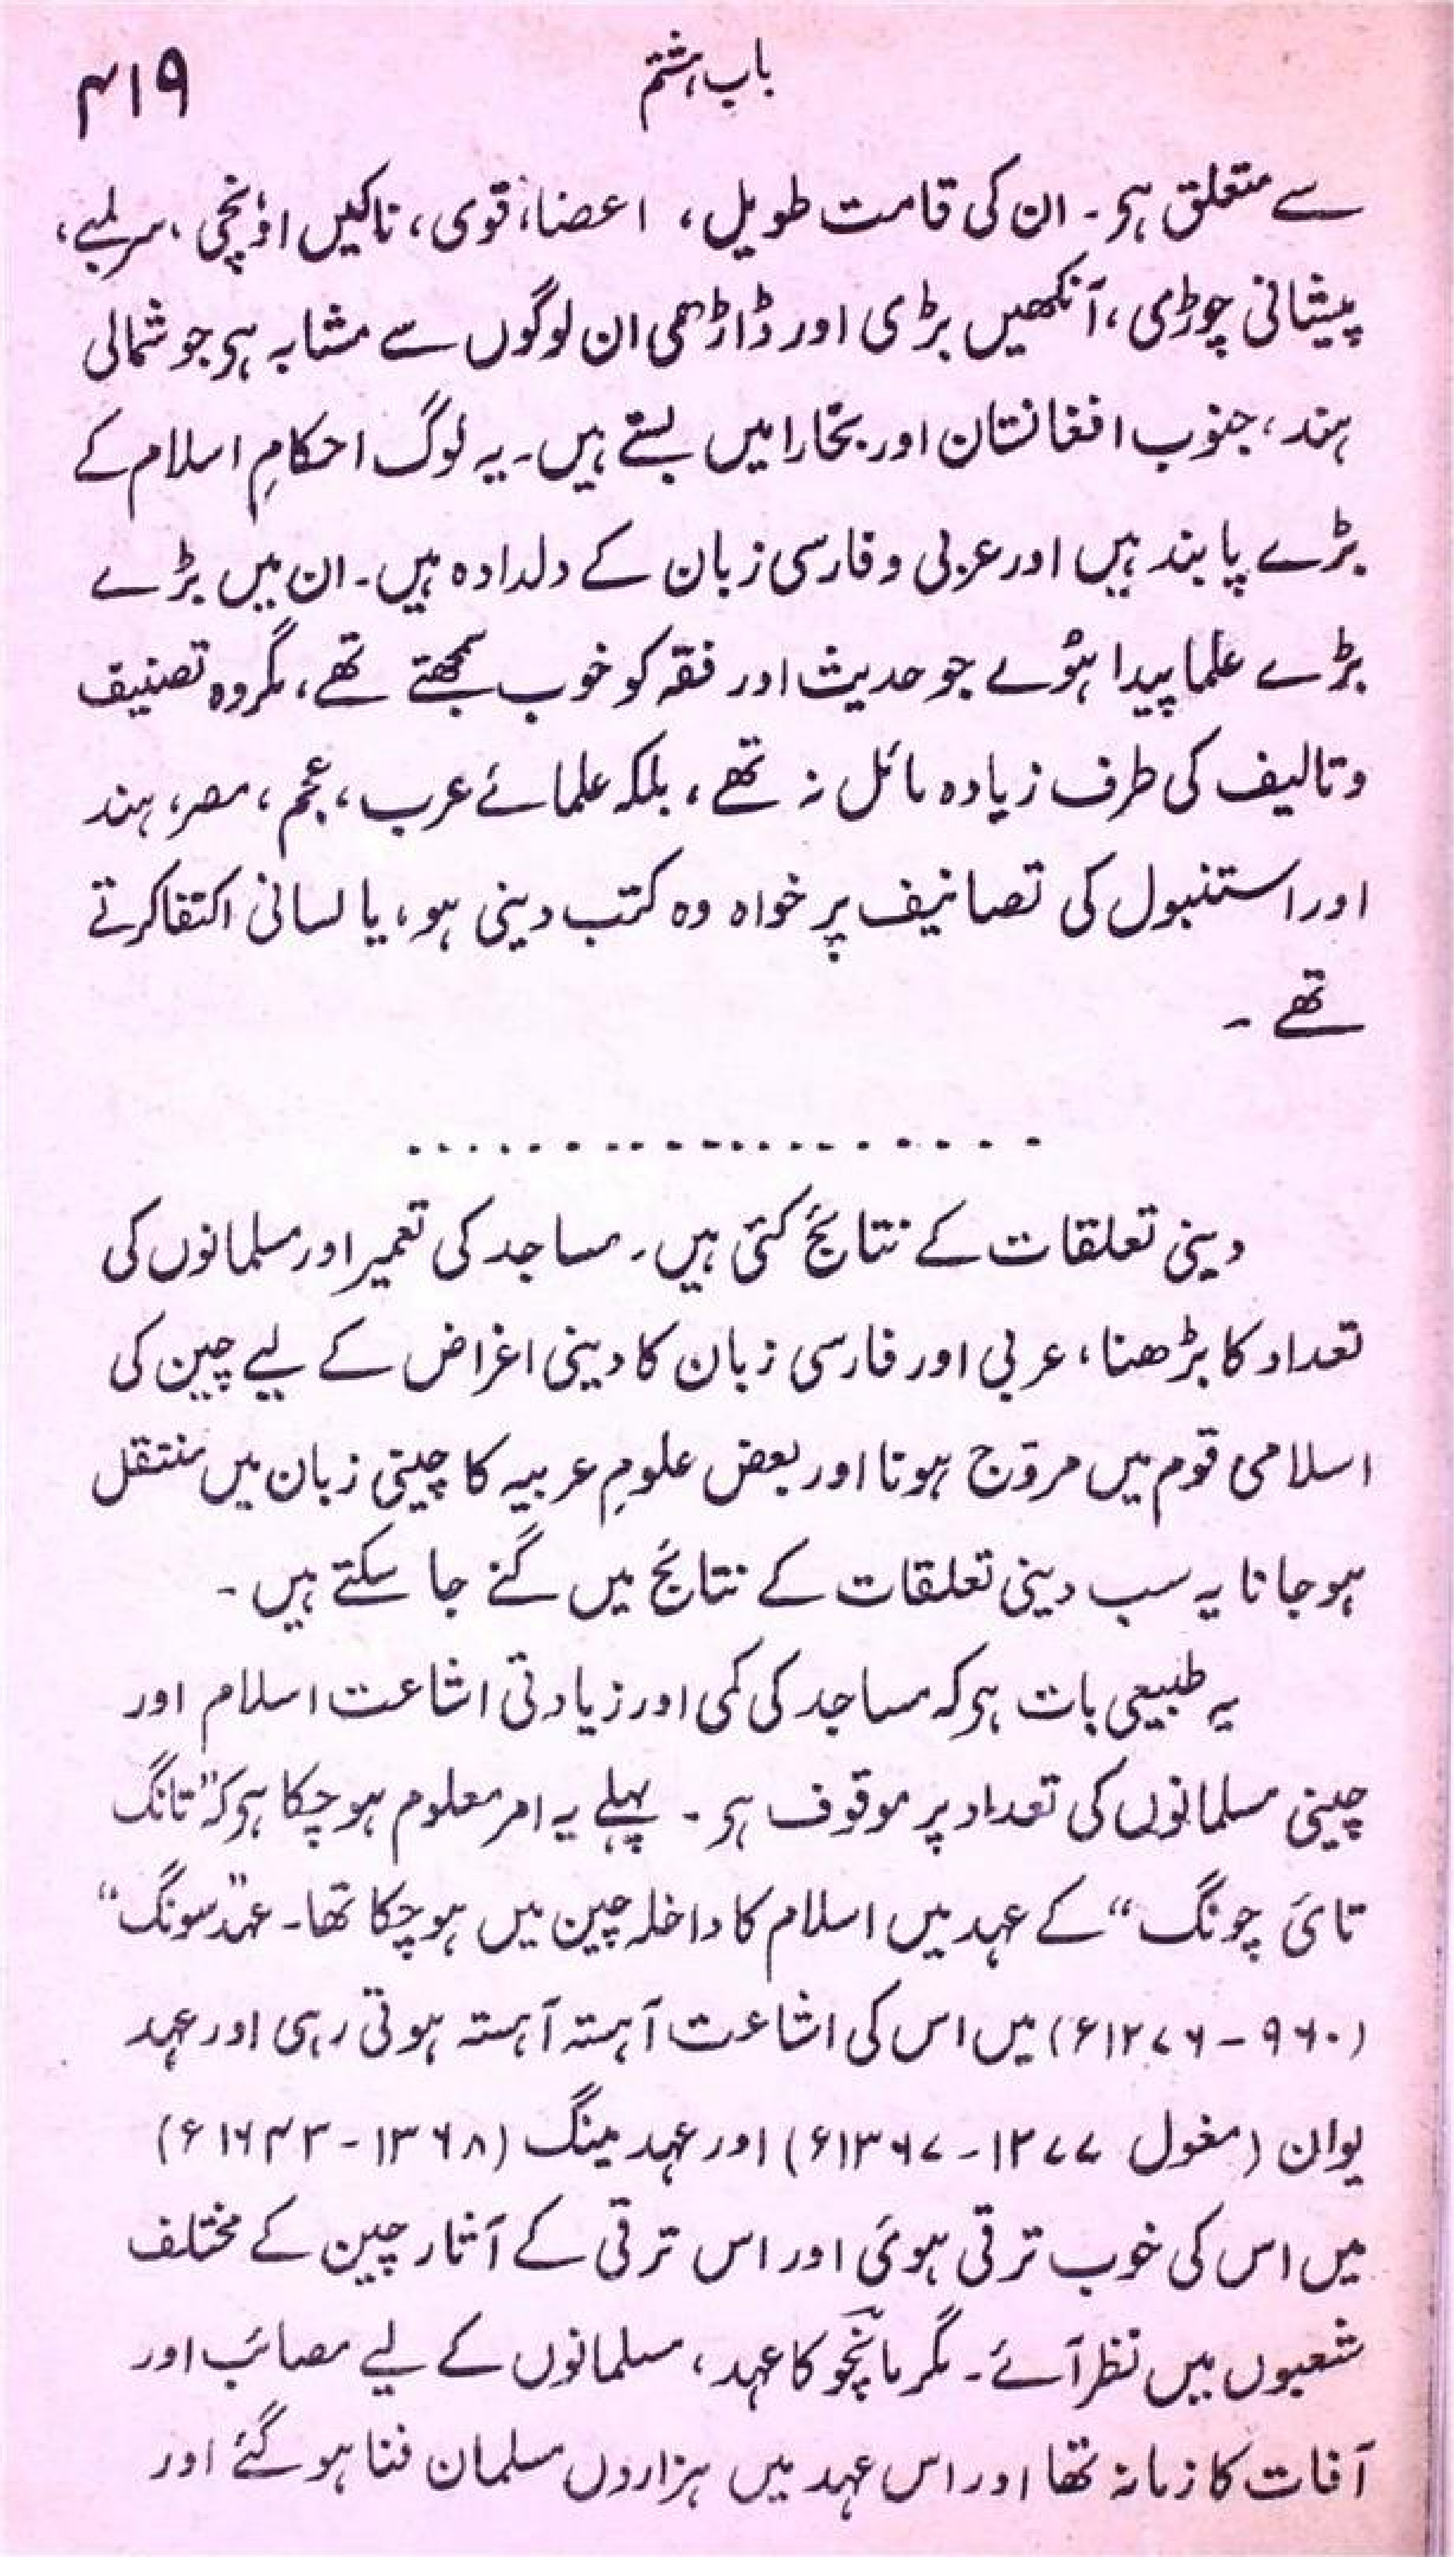 باب ہشتم
۴۱۹
سے متعلق ہی۔ ان کی قامت طویل، اعضاء قوی، ناکیں اؤنچی، سر لمبے،
پیشانی چوڑی، آنکھیں بڑی اور ڈاڑھی ان لوگوں سے مشابہ ہی جو شمالی
ہند، جنوب افغانستان اور بخارا میں بستے ہیں۔ یہ لوگ احکامِ اسلام کے
بڑے پابند ہیں اور عربی و فارسی زبان کے دلدادہ ہیں۔ ان میں بڑے
بڑے علما پیدا ہوئے جو حدیث اور فقہ کو خوب سمجھتے تھے، مگر وہ تصنیف
و تالیف کی طرف زیادہ مائل نہ تھے، بلکہ علمائے عرب، عجم، مصر، ہند
اور استنبول کی تصانیف پر خواہ وہ کتب دینی ہو، یا لسانی اکتفا کرتے
تھے ۔
. . . . . . . . . . . . . . . . . . .
دینی تعلقات کے نتائج کئی ہیں۔ مساجد کی تعمیر اور مسلمانوں کی
تعداد کا بڑھنا، عربی اور فارسی زبان کا دینی اغراض کے لیے چین کی
اسلامی قوم میں مروّج ہونا اور بعض علومِ عربیہ کا چینی زبان میں منتقل
ہو جانا یہ سب دینی تعلقات کے نتائج میں گنے جا سکتے ہیں ۔
یہ طبیعی بات ہی کہ مساجد کی کمی اور زیادتی اشاعت اسلام اور
چینی مسلمانوں کی تعداد پر موقوف ہی ۔ پہلے یہ امر معلوم ہو چکا ہی کہ ”تانگ
تائ چونگ“ کے عہد میں اسلام کا داخلہ چین میں ہو چکا تھا۔ عہد ”سونگ“
(۹۶۰ – ۱۲۷۶ء) میں اس کی اشاعت آہستہ آہستہ ہوتی رہی اور عہد
یوان (مغول ۱۲۷۷ – ۱۳۶۷ء) اور عہد مینگ (۱۳۶۸ – ۱۶۴۳ء)
میں اس کی خوب ترقی ہوئ اور اس ترقی کے آثار چین کے مختلف
شعبوں میں نظر آئے۔ مگر مانچو کا عہد، مسلمانوں کے لیے مصائب اور
آفات کا زمانہ تھا اور اس عہد میں ہزاروں مسلمان فنا ہو گئے اور